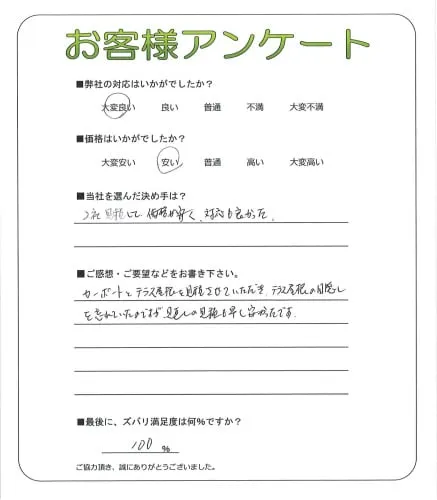 お客様アンケート
■弊社の対応はいかがでしたか？
大変良い 良い 普通 不満 大変不満
■価格はいかがでしたか？
大変安い 安い 普通 高い 大変高い
■当社を選んだ決め手は？
2社見積して価格が安く、対応も良かった。
■ご感想・ご要望などをお書き下さい。
カーポートとテラス屋根を見積させていただき、テラス屋根の目隠し
見積も早し
■最後に、ズバリ満足度は何%ですか？
100 %
ご協力頂き、誠にありがとうございました。